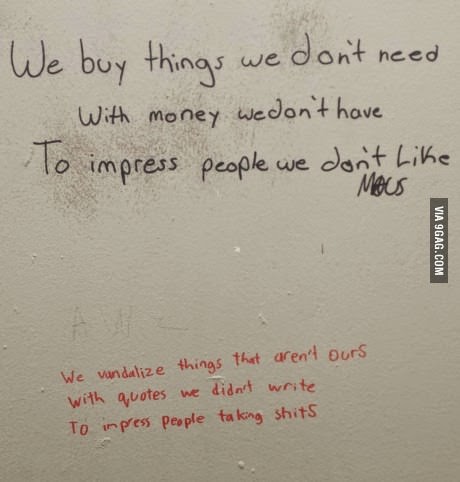 We buy things we don't need
With money we don't have
To impress people we don't Like
VIA 9GAG.COM
We vandalize things that aren't ours
with quotes we didn't write
To impress people taking shits